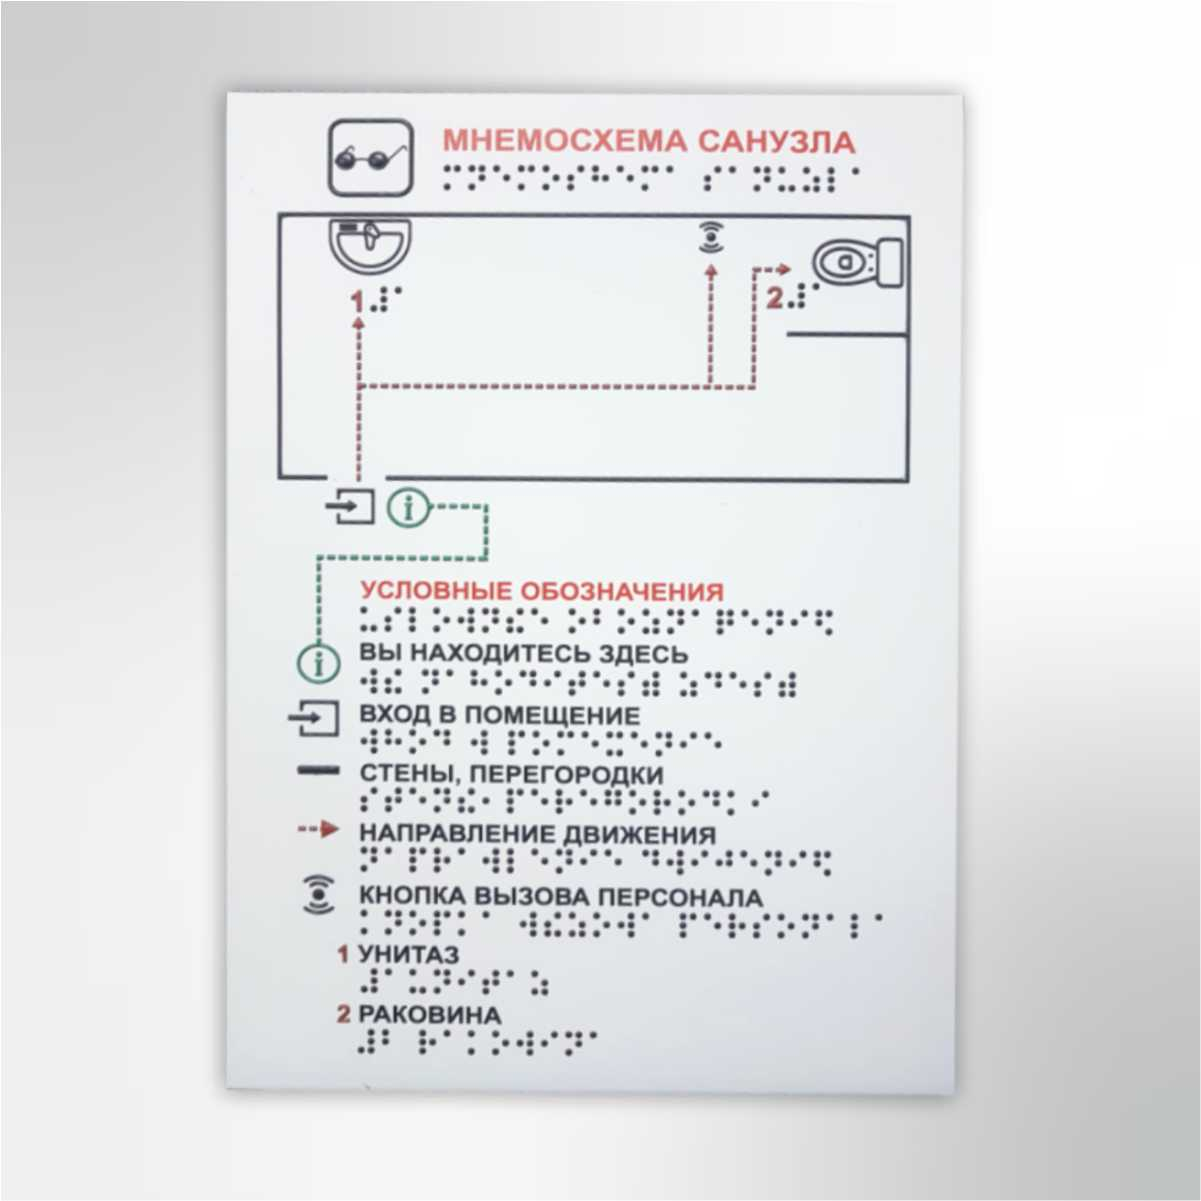 МНЕМОСХЕМА САНУЗЛА
1
2
УСЛОВНЫЕ ОБОЗНАЧЕНИЯ
ВЫ НАХОДИТЕСЬ ЗДЕСЬ
ВХОД В ПОМЕЩЕНИЕ
СТЕНЫ, ПЕРЕГОРОДКИ
НАПРАВЛЕНИЕ ДВИЖЕНИЯ
КНОПКА ВЫЗОВА ПЕРСОНАЛА
1 УНИТАЗ
2 РАКОВИНА